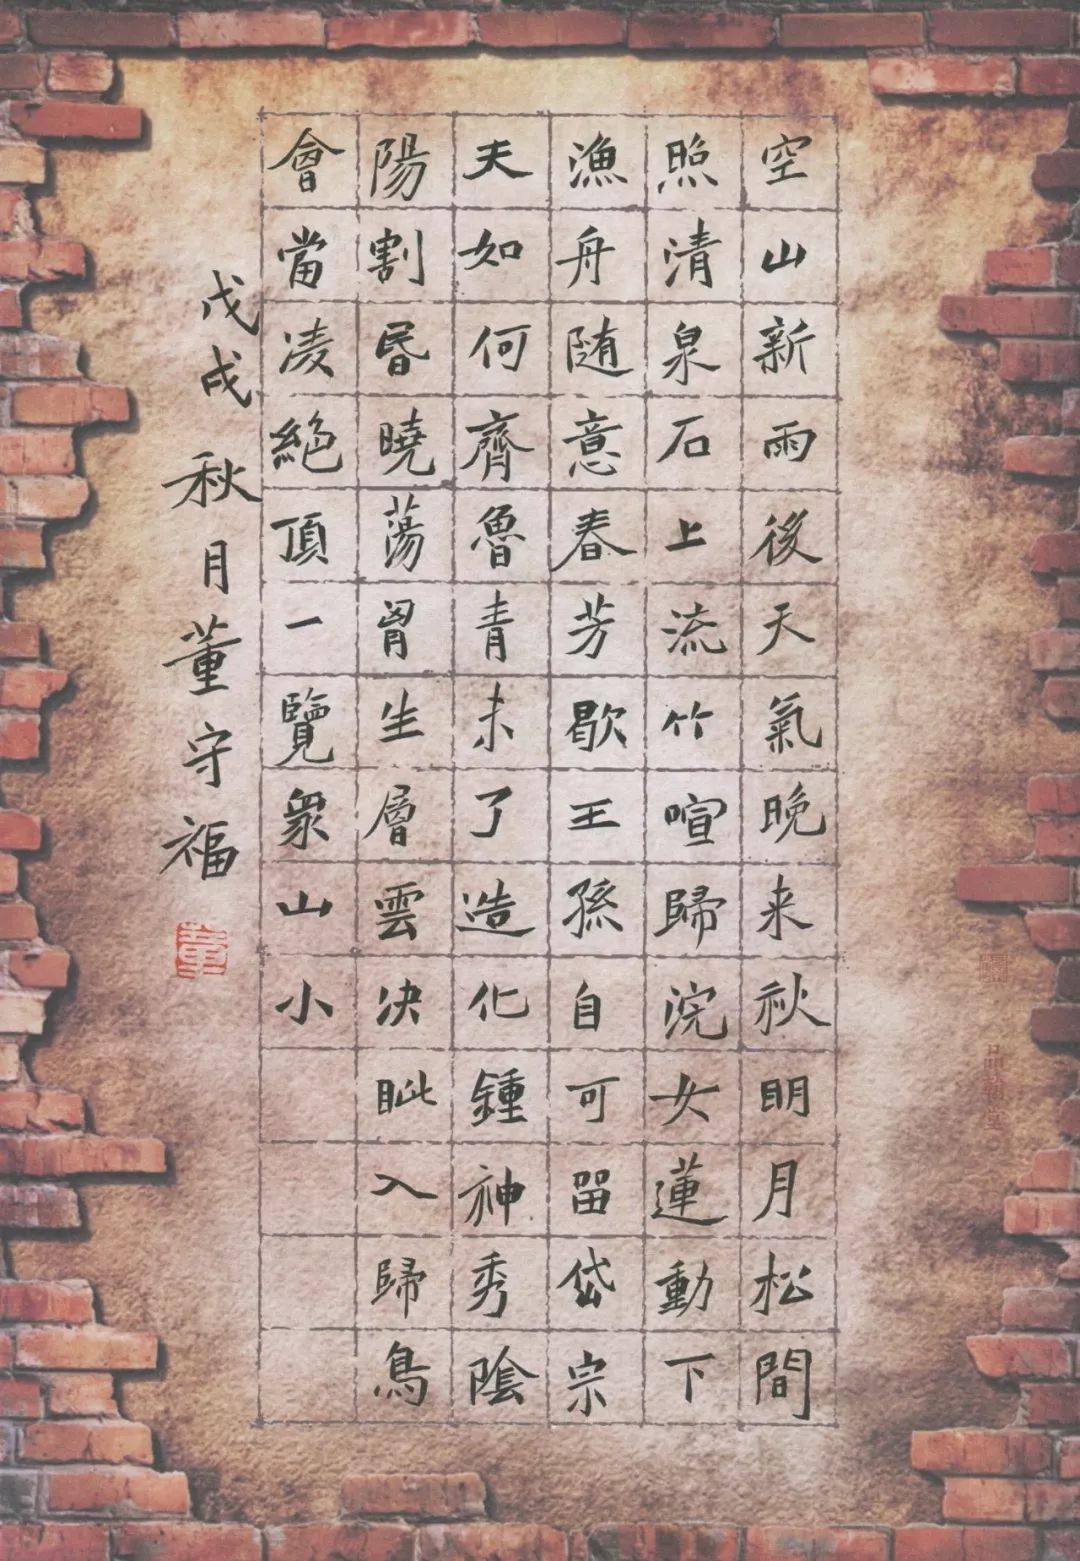 空山新雨後天氣晚来秋明月松間
照清泉石上流竹喧歸浣女蓮動下
漁舟随意春芳歇王孫自可留岱宗
夫如何齊魯青未了造化鍾神秀陰
陽割昬曉蕩胷生層雲决眦入歸鳥
會當凌絕頂一覽衆山小
戊戌秋月董守福
董